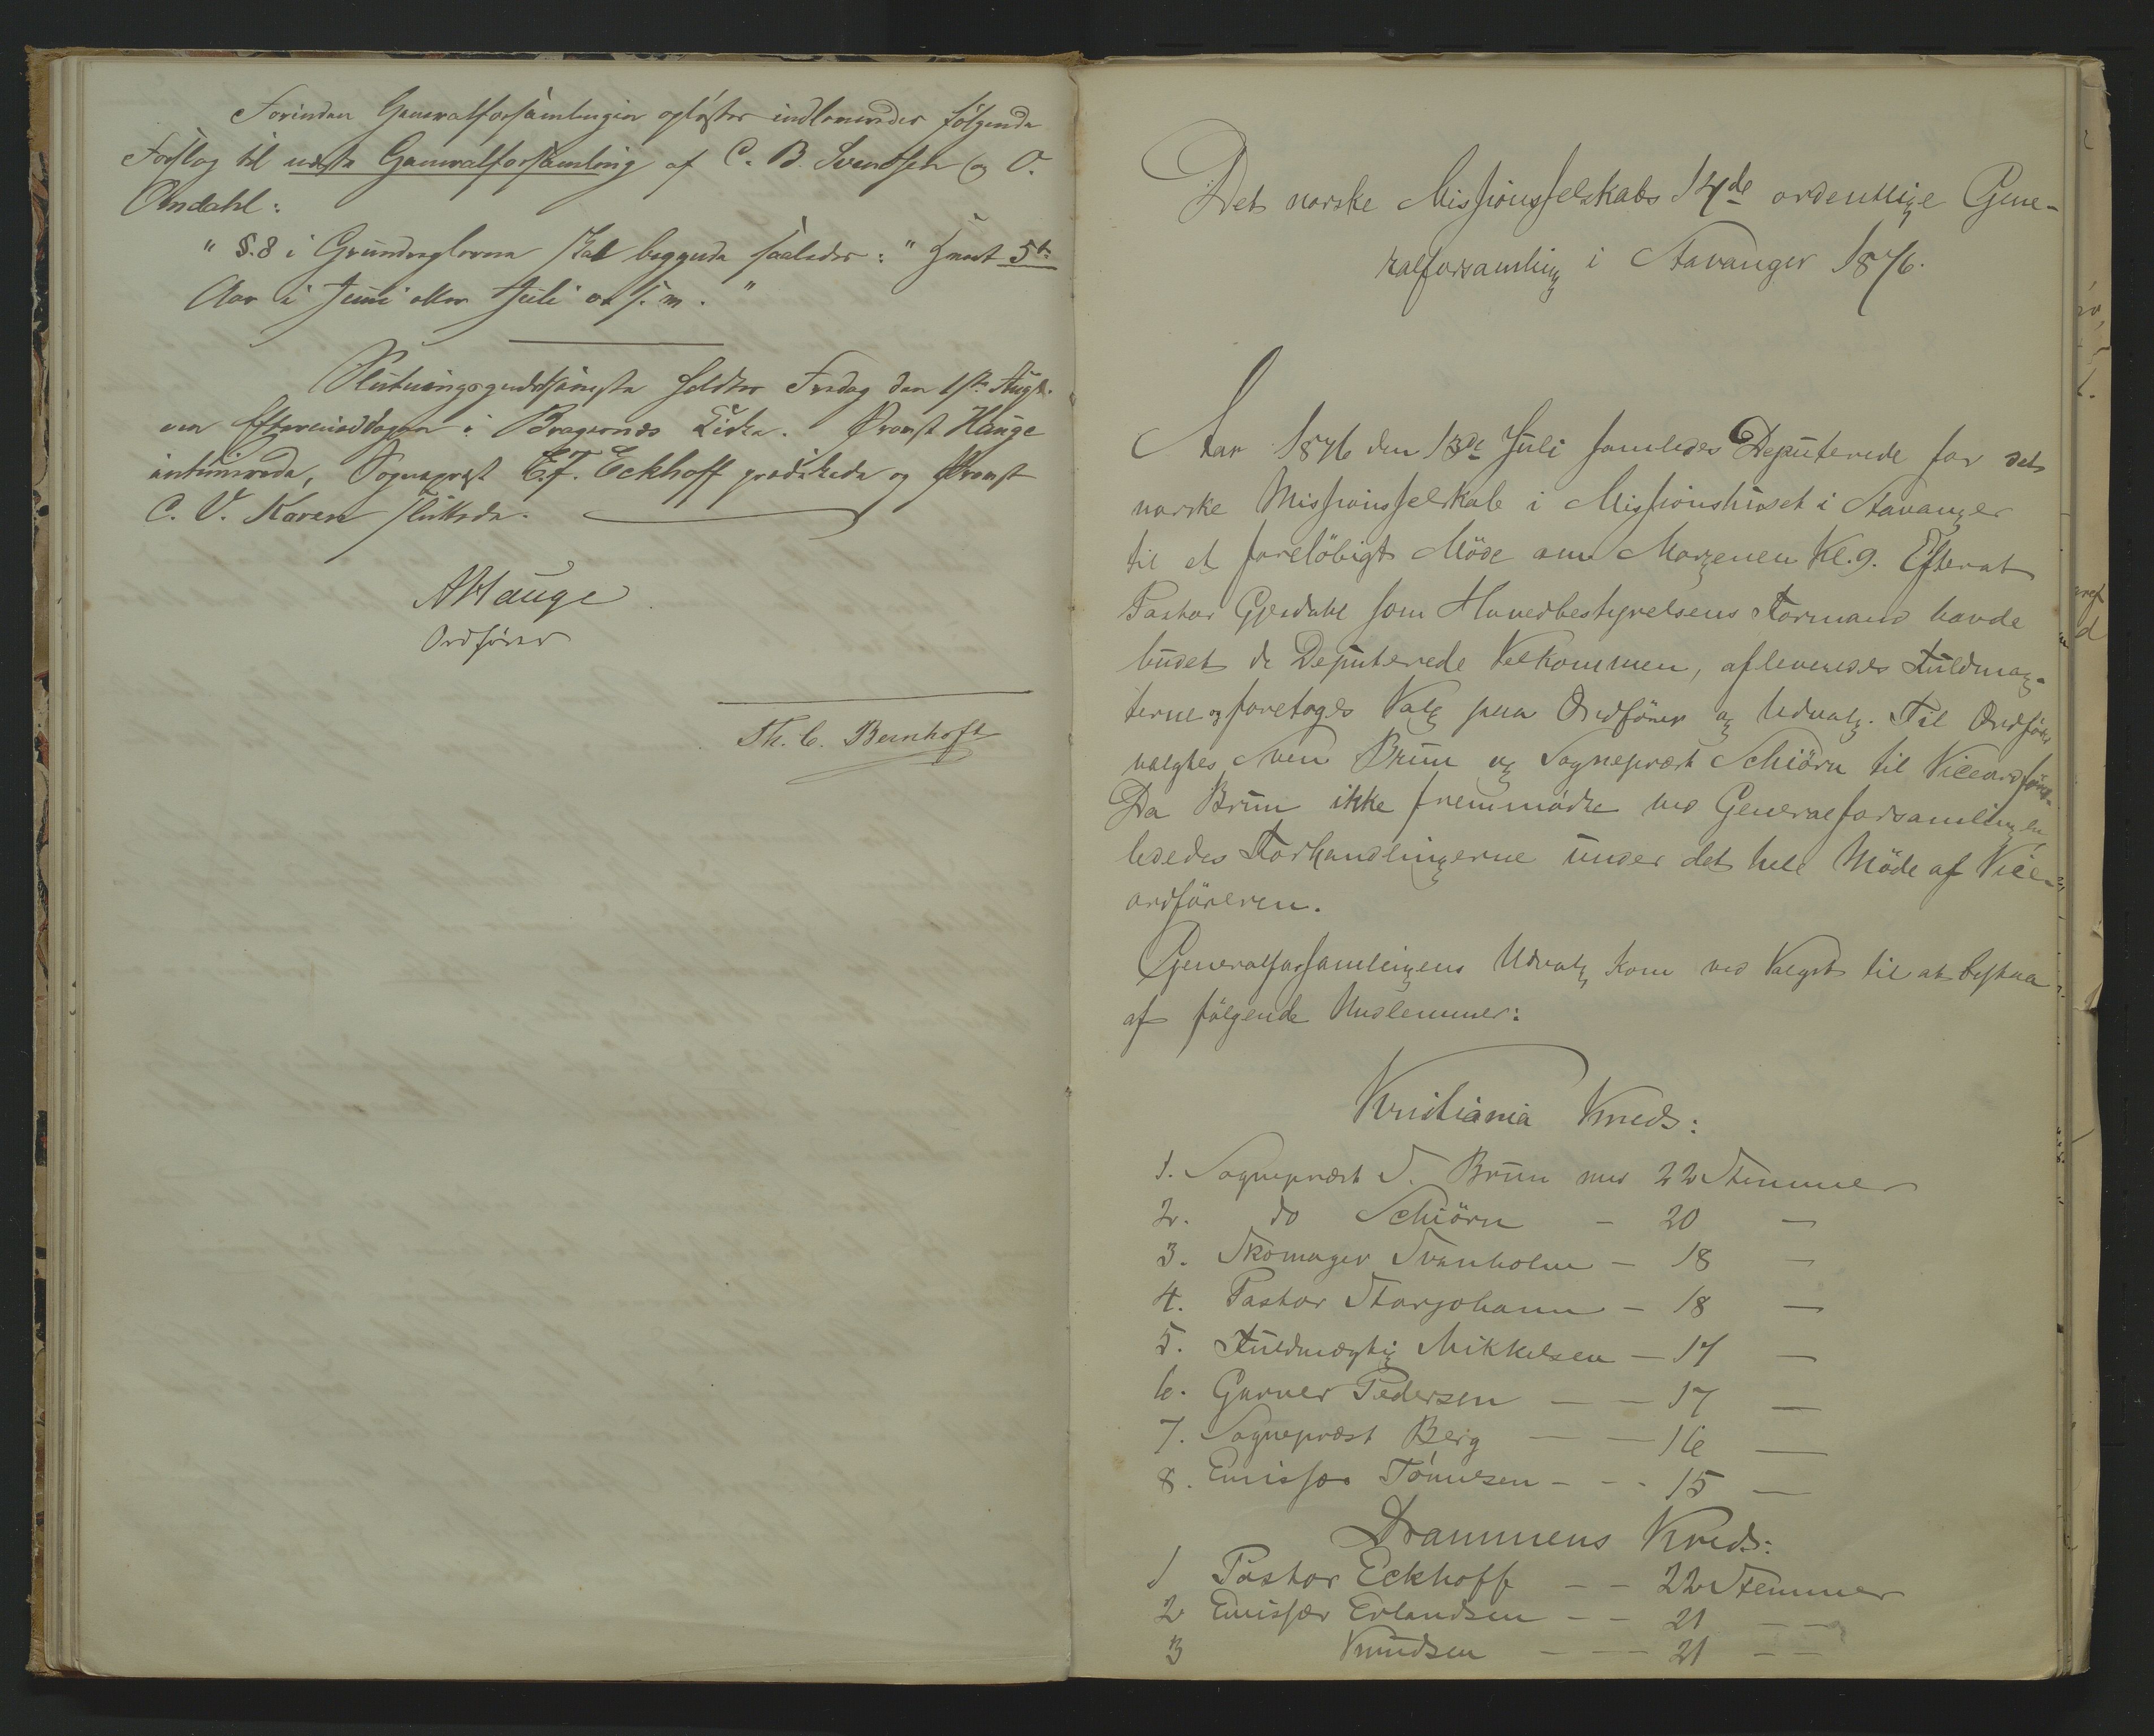 Forinden Generalforsamlingen opløstes indleveredes følgende
Forslag til næste Generalforsamling af C. B. Svendsen og O.
Omdahl:
"§. 8 i Grundreglerne skal begynde saaledes: "Hvert 5te
Aar i Juni eller Juli o. s. m."
Slutningsgudstjeneste holdtes Fredag den 1ste Augst.
om Eftermiddagen i Bragernes Kirke. Provst Hauge
intimerede, Sognepræst E. F. Eckhoff prædikede og Provst
C. V. Karen sluttede.
AHauge
Ordfører
Th. C. Bernhoft
Det norske Missionsselskabs 14de ordentlige Gene-
ralforsamling i Stavanger 1876.
Aar 1876 den 13de Juli samledes Deputerede for det
norske Missionsselskab i Missionshuset i Stavanger
til et foreløbigt Möde om Morgenen Kl. 9. Efterat
Pastor Gjerdahl som Hovedbestyrelsens Formand havde
budet de Deputerede Velkommen, afleveredes Fuldmag-
terne og foretoges Valg paa Ordförer og Udvalg. Til Ordförer
valgtes Sven Brun og Sognepræst Schiörn til Viceordförer.
Da Brun ikke fremmödte ved Generalforsamlingen,
lededes Forhandlingerne under det hele Möde af Vice-
ordföreren.
Generalforsamlingens Udvalg kom ved Valget til at bestaa
af fölgende Medlemmer:
Kristiania Kreds:
1. Sognepræst S. Brun med 22 Stemmer
2. do Schiörn - 20 —
3. Skomager Svanholm - 18 —
4. Pastor Storjohann - 18 —
5. Fuldmægtig Mikkelsen - 17 —
6. Garver Pedersen — — 17 —
7. Sognepræst Berg — — 16 —
8. Emissær Tönnesen - - - 15 —
Drammens Kreds:
1 Pastor Eckhoff — — 22 Stemmer
2 Emissær Erlandsen — — 21 — —
3 Knudsen — — — 21 — —